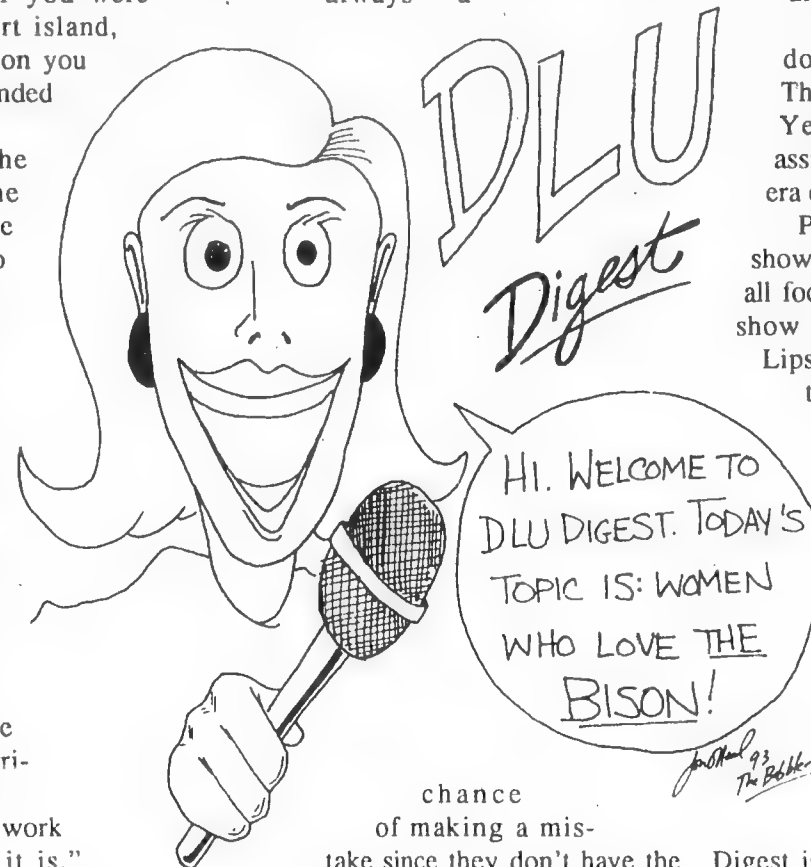 you were
rt island,
on you
nded
he
ne
e
o
e
ri-
work
it is."
always a
DLU
Digest
HI. WELCOME TO
DLU DIGEST. TODAY'S
TOPIC IS: WOMEN
WHO LOVE THE
BISON!
93
The
chance
of making a mis-
take since they don't have the
do
Th
Ye
ass
era
P
show
all foo
show
Lips
t
Digest i